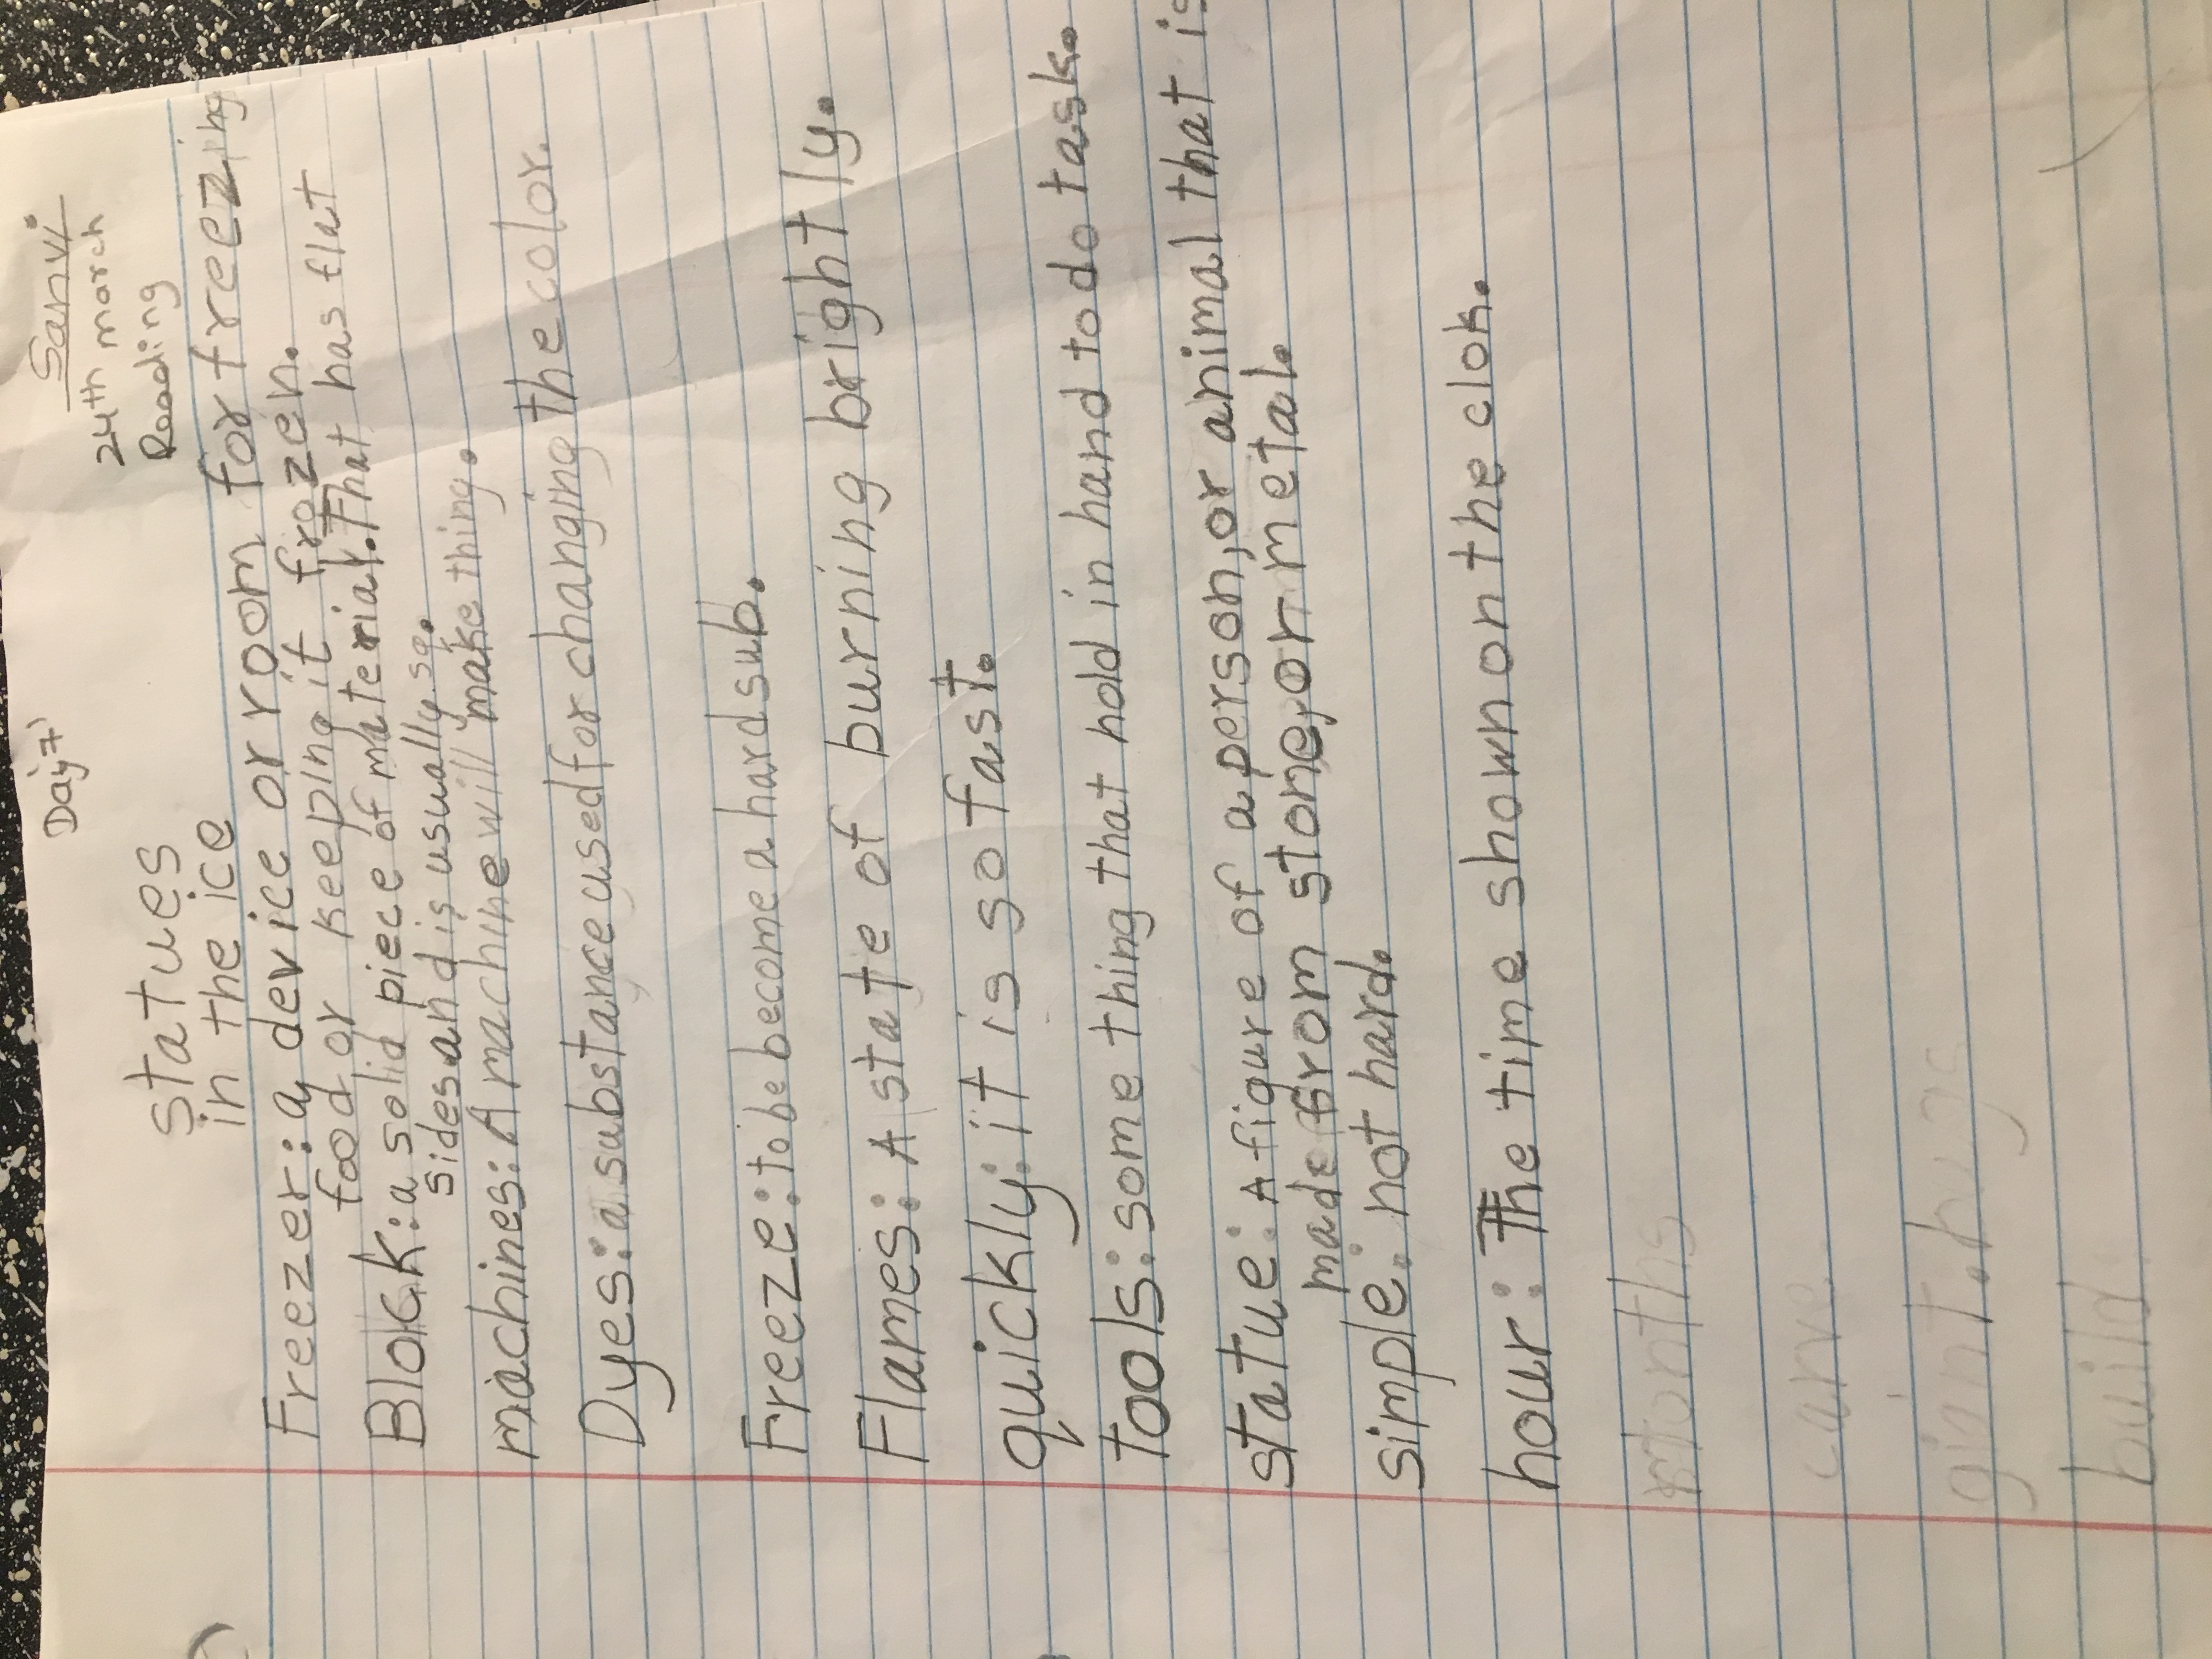 Day 7
Sanvi
24th march
Reading
statues
in the ice
Freezer: a device or room for freezing
food or keeping it frozen.
Block: a solid piece of material. That has flat
sides and is usually sq.
machines: A machine will make thing.
Dyes: a substance used for changing the color.
Freeze: to be become a hard sub.
Flames: A state of burning brightly.
quickly: it is so fast.
tools: some thing that hold in hand to do task.
statue: A figure of a person, or animal that is
made from stone, or metal.
simple: not hard.
hour: The time shown on the clok.
months
carve
giant. hugs
build